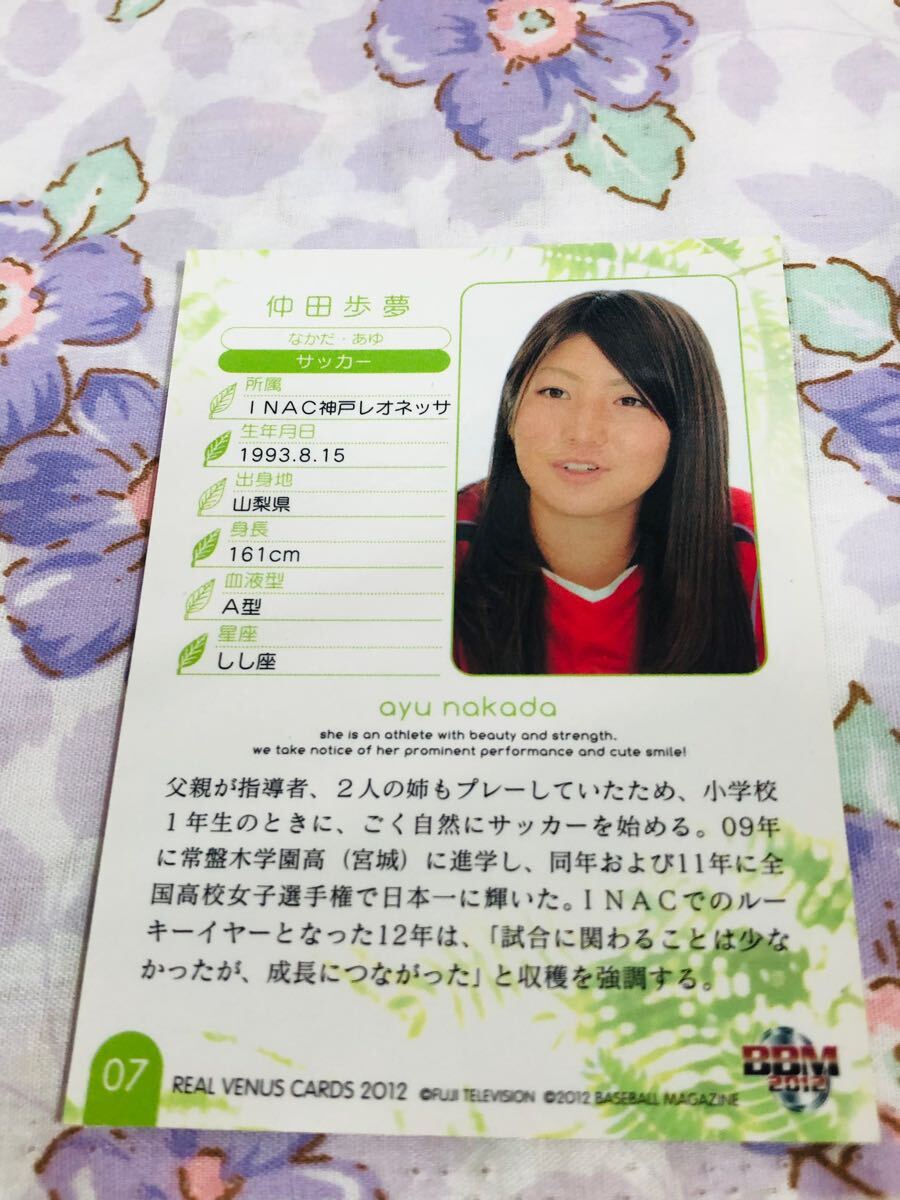 仲田歩夢
なかだ・あゆ
サッカー
所属
INAC神戸レオネッサ
生年月日
1993.8.15
出身地
山梨県
身長
161cm
血液型
A型
星座
しし座
ayu nakada
she is an athlete with beauty and strength.
we take notice of her prominent performance and cute smile!
父親が指導者、2人の姉もプレーしていたため、小学校
1年生のときに、ごく自然にサッカーを始める。09年
に常盤木学園高（宮城）に進学し、同年および11年に全
国高校女子選手権で日本一に輝いた。INACでのルー
キーイヤーとなった12年は、「試合に関わることは少な
かったが、成長につながった」と収穫を強調する。
07
REAL VENUS CARDS 2012 ©FUJI TELEVISION ©2012 BASEBALL MAGAZINE
BBM
2012